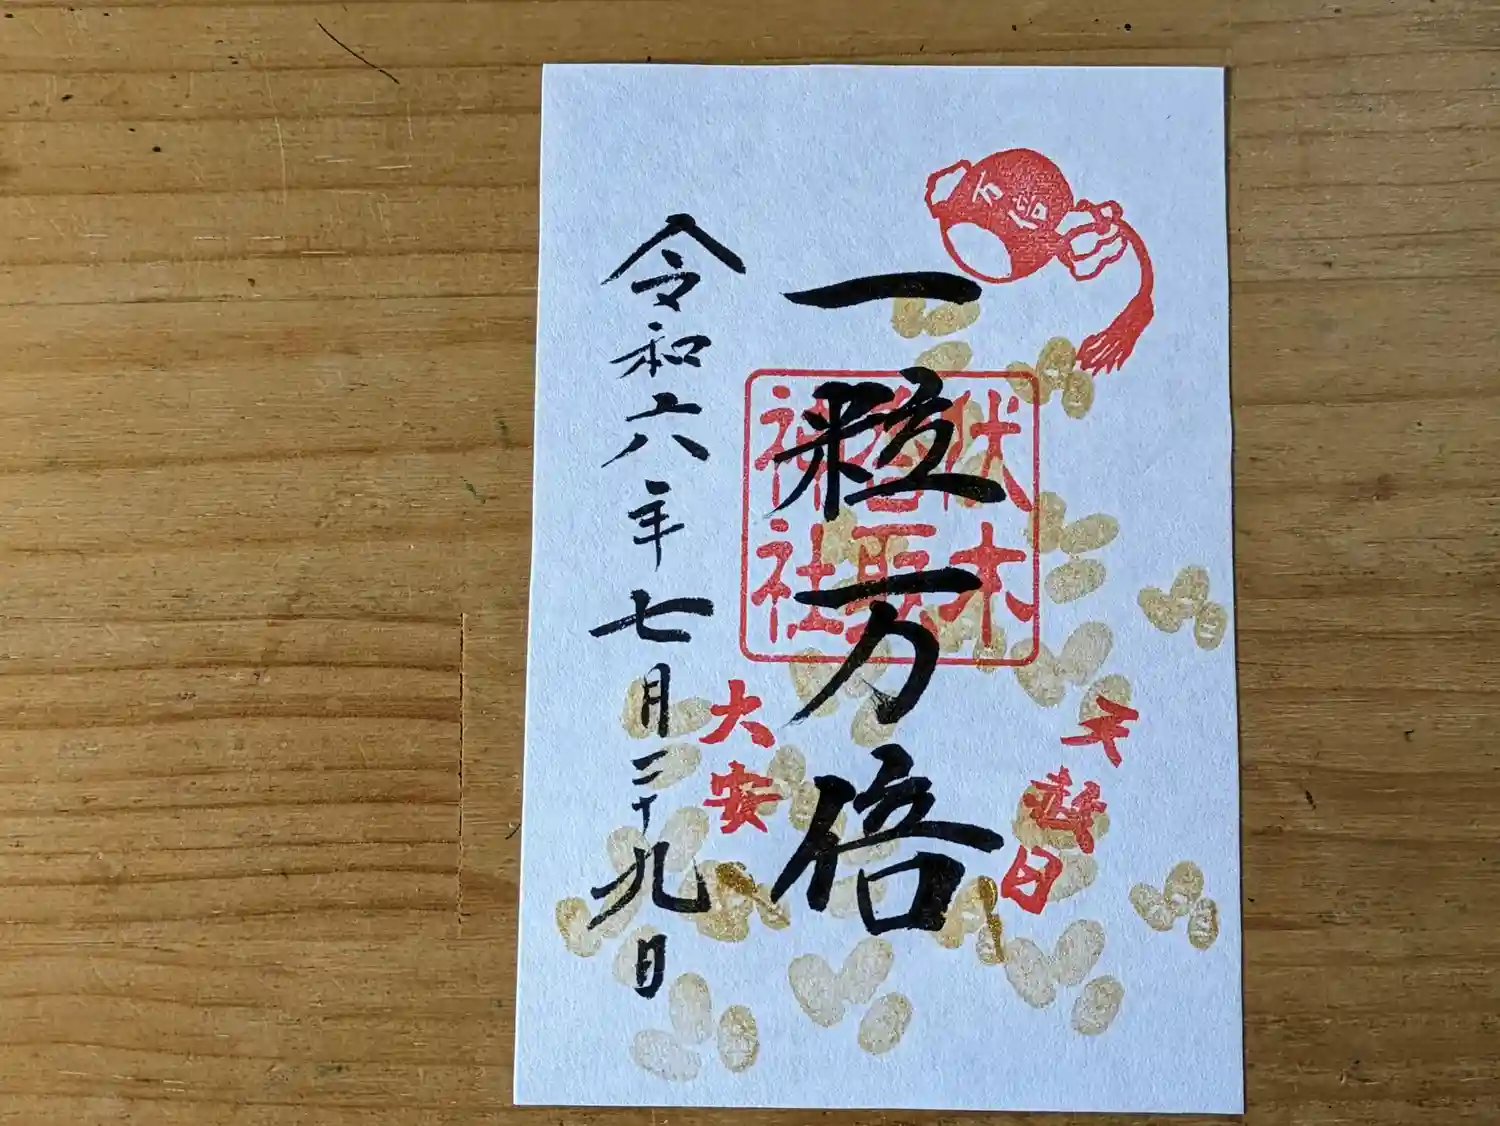 万倍
天赦日
一粒万倍
伏木
香取
神社
大安
令和六年七月二十九日